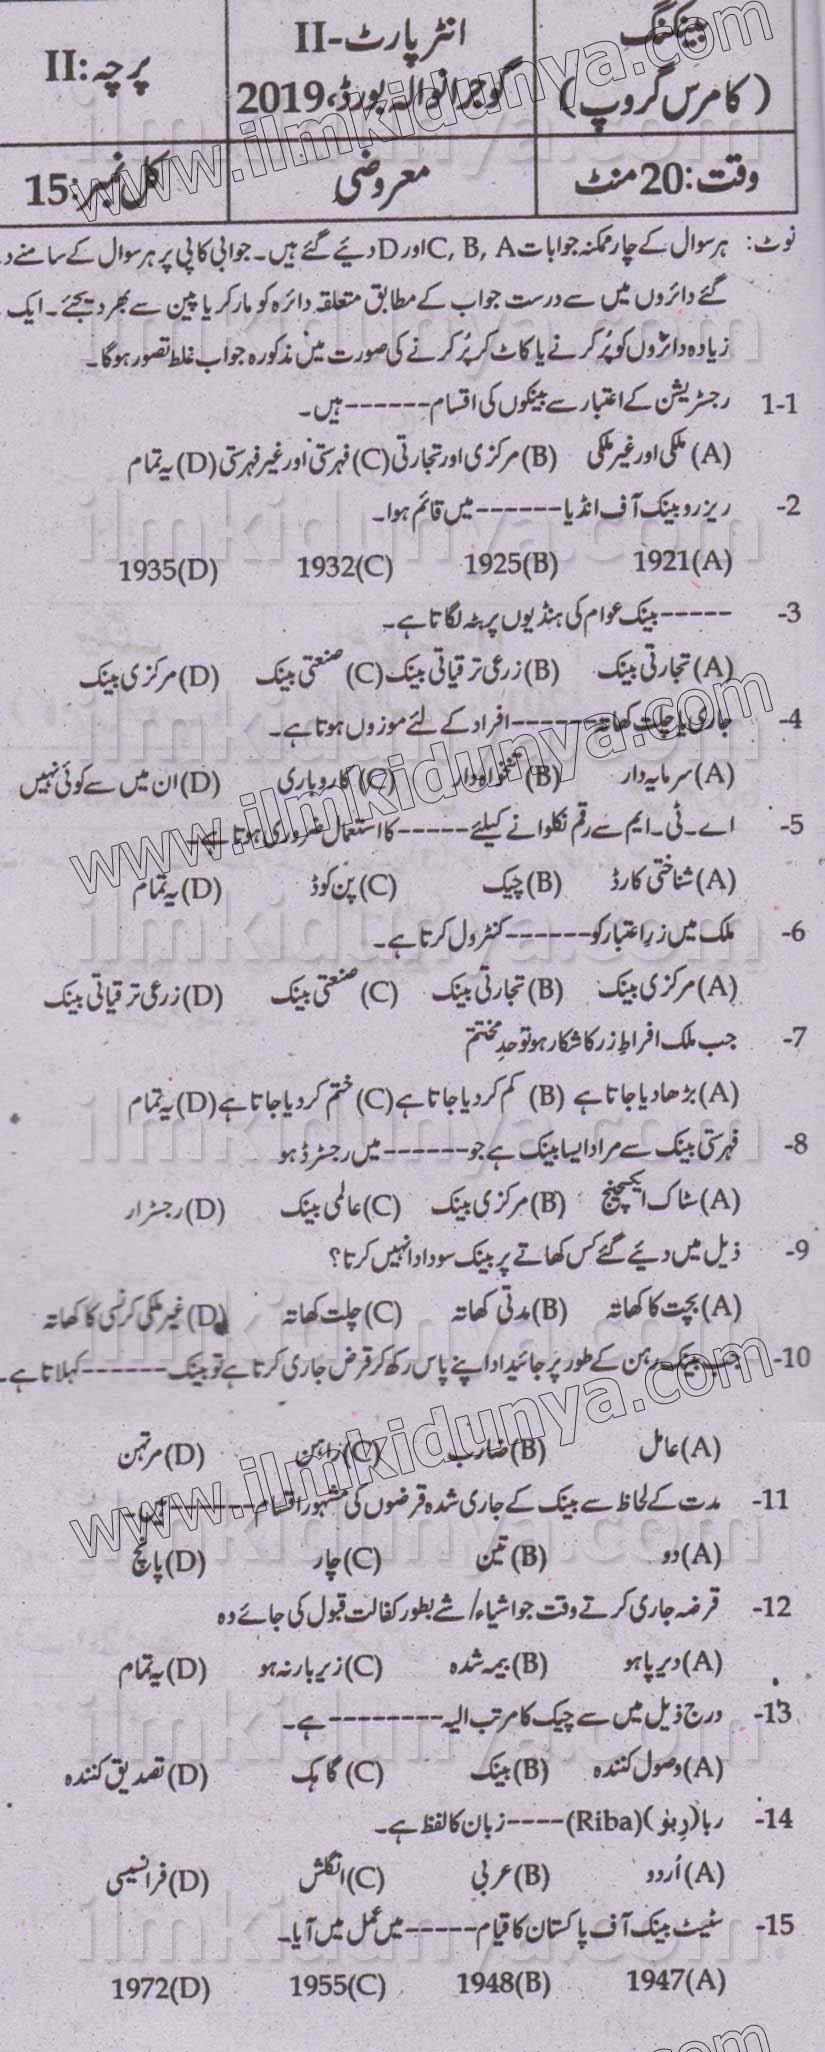 بینکنگ
(کامرس گروپ)
انٹر پارٹ-II
گوجرانوالہ بورڈ، 2019
پرچہ: II
وقت: 20 منٹ
معروضی
کل نمبر: 15
نوٹ: ہر سوال کے چار ممکنہ جوابات C, B, A اور D دیئے گئے ہیں۔ جوابی کاپی پر ہر سوال کے سامنے د
گئے دائروں میں سے درست جواب کے مطابق متعلقہ دائرہ کو مارکر یا پین سے بھر دیجئے۔ ایک
زیادہ دائروں کو پُر کرنے یا کاٹ کر پُر کرنے کی صورت میں مذکورہ جواب غلط تصور ہوگا۔
1-1 رجسٹریشن کے اعتبار سے بینکوں کی اقسام ------ ہیں۔
(A) ملکی اور غیر ملکی (B) مرکزی اور تجارتی (C) فہرستی اور غیر فہرستی (D) یہ تمام
2- ریزرو بینک آف انڈیا ------ میں قائم ہوا۔
1921(A) 1925(B) 1932(C) 1935(D)
3- ----- بینک عوام کی ہنڈیوں پر بٹہ لگاتا ہے۔
(A) تجارتی بینک (B) زرعی ترقیاتی بینک (C) صنعتی بینک (D) مرکزی بینک
4- جاری یا چلت کھاتہ ------ افراد کے لئے موزوں ہوتا ہے۔
(A) سرمایہ دار (B) تنخواہ دار (C) کاروباری (D) ان میں سے کوئی نہیں
5- اے۔ٹی۔ایم سے رقم نکلوانے کیلئے ----- کا استعمال ضروری ہوتا ہے۔
(A) شناختی کارڈ (B) چیک (C) پن کوڈ (D) یہ تمام
6- ملک میں زرِ اعتبار کو ------ کنٹرول کرتا ہے۔
(A) مرکزی بینک (B) تجارتی بینک (C) صنعتی بینک (D) زرعی ترقیاتی بینک
7- جب ملک افراطِ زر کا شکار ہو تو حدِ مختتم
(A) بڑھا دیا جاتا ہے (B) کم کر دیا جاتا ہے (C) ختم کر دیا جاتا ہے (D) یہ تمام
8- فہرستی بینک سے مراد ایسا بینک ہے جو ------ میں رجسٹرڈ ہو
(A) سٹاک ایکسچینج (B) مرکزی بینک (C) عالمی بینک (D) رجسٹرار
9- ذیل میں دیئے گئے کس کھاتے پر بینک سود ادا نہیں کرتا؟
(A) بچت کا کھاتہ (B) مدتی کھاتہ (C) چلت کھاتہ (D) غیر ملکی کرنسی کا کھاتہ
10- جب بینک رہن کے طور پر جائیداد اپنے پاس رکھ کر قرض جاری کرتا ہے تو بینک ------ کہلاتا ہے۔
(A) عامل (B) ضارب (C) راہن (D) مرتہن
11- مدت کے لحاظ سے بینک کے جاری شدہ قرضوں کی مشہور اقسام ------ ہیں۔
(A) دو (B) تین (C) چار (D) پانچ
12- قرضہ جاری کرتے وقت جو اشیاء/شے بطور کفالت قبول کی جائے وہ
(A) دیرپا ہو (B) بیمہ شدہ (C) زیر بار نہ ہو (D) یہ تمام
13- درج ذیل میں سے چیک کا مرتب الیہ -------- ہے۔
(A) وصول کنندہ (B) بینک (C) گاہک (D) تصدیق کنندہ
14- ربا (رِبٰو) (Riba) ---- زبان کا لفظ ہے۔
(A) اُردو (B) عربی (C) انگلش (D) فرانسیسی
15- سٹیٹ بینک آف پاکستان کا قیام ----- میں عمل میں آیا۔
1947(A) 1948(B) 1955(C) 1972(D)
www.ilmkidunya.com
ilmkidunya.com